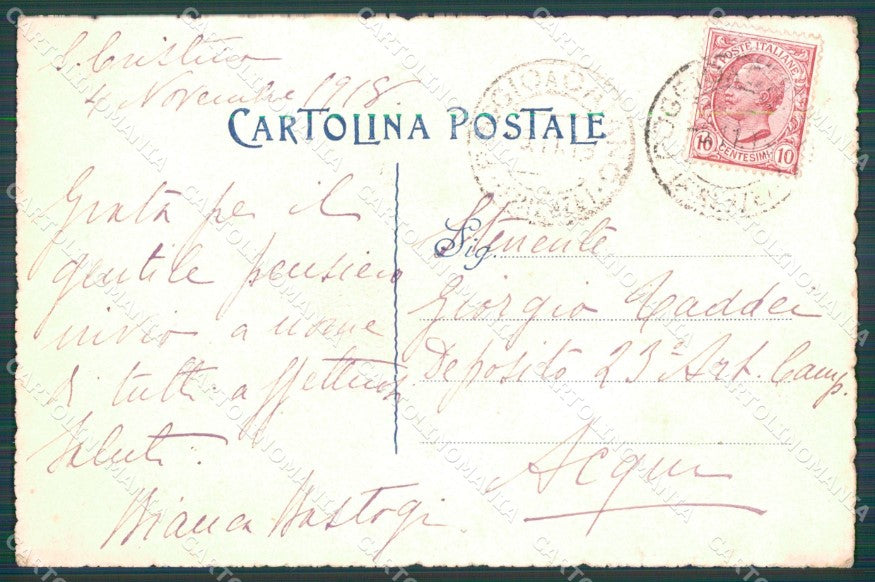 S. Cristina
4 Novembre 1918.
CARTOLINA POSTALE
Grata per il
gentile pensiero
invio a nome
di tutti affettuosi
saluti.
Bianca Bastogi
POSTE ITALIANE
10 CENTESIMI 10
Sig.
S. Tenente
Giorgio Taddei
Deposito 23ª Art. Camp.
Acqui
CARTOLINOMANIA